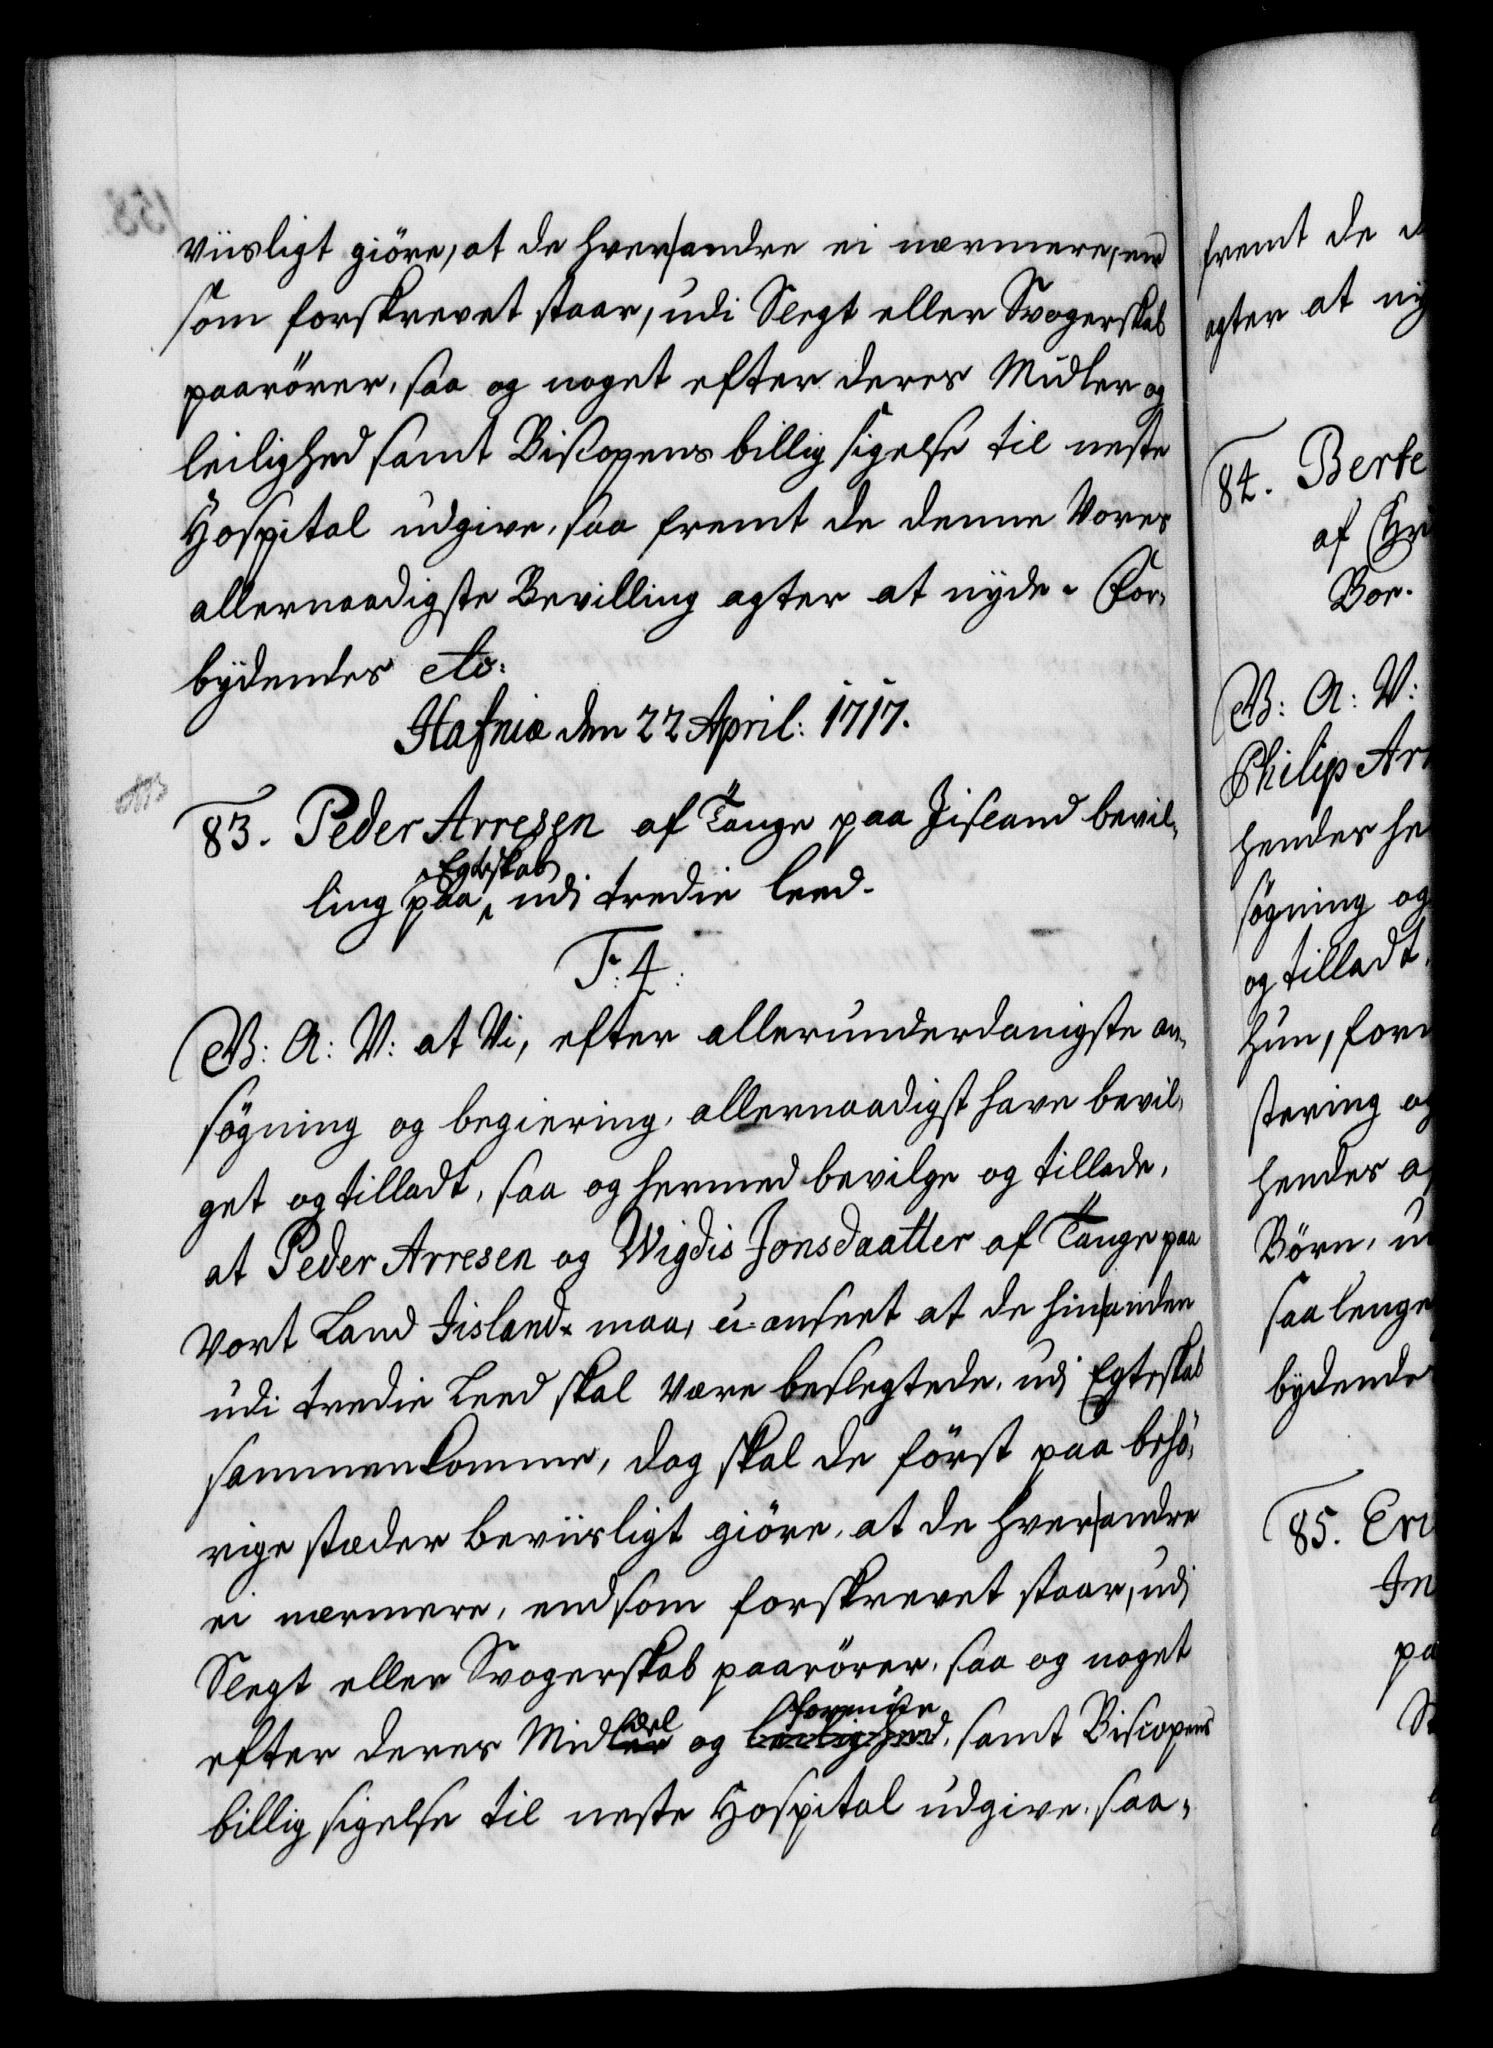 viisligt giöre, at de hver andre ei nærmere, end
som forskrevet staar, udi Slegt eller Svogerskab
paarörer, saa og noget efter deres Midler og
leilighed samt Biscopens billig sigelse til neste
Hospital udgive, saa fremt de denne Vores
allernaadigste Bevilling agter at nyde. For,
bydendes etc:
Hafniæ den 22 April: 1717.
83. Peder Arresen af Tange paa Jisland bevil,
Egteskab
ling paa udi tredie leed.
T: 4:
V: A: V: at Vi, efter allerunderdanigste an,
sögning og begiering, allernaadigst have bevil,
get og tilladt, saa og hermed bevilge og tillade,
at Peder Arresen og Wigdis Jonsdaatter af Tange paa
Vort Land Jisland maa, u anseet at de hin anden
udi tredie Leed skal være beslegtede, udi Egteskab
sammenkomme, dog skal de först paa behö,
rige stæder beviisligt giöre, at de hver andre
ei nærmere, end som forskrevet staar, udi
Slegt eller Svogerskab paarörer, saa og noget
del formüe
efter deres Midler og leilighed, samt Biscopens
billig sigelse til neste Hospital udgive, saa,
fremt de
agter at ny
84. Berte
af Chri
Boe.
V: A: V:
Philip Ar
hendes
sögning og
og tilladt,
hun, for
stering og
hendes
Börn, u
saa lenge
bydende
85. Eri
In
pa